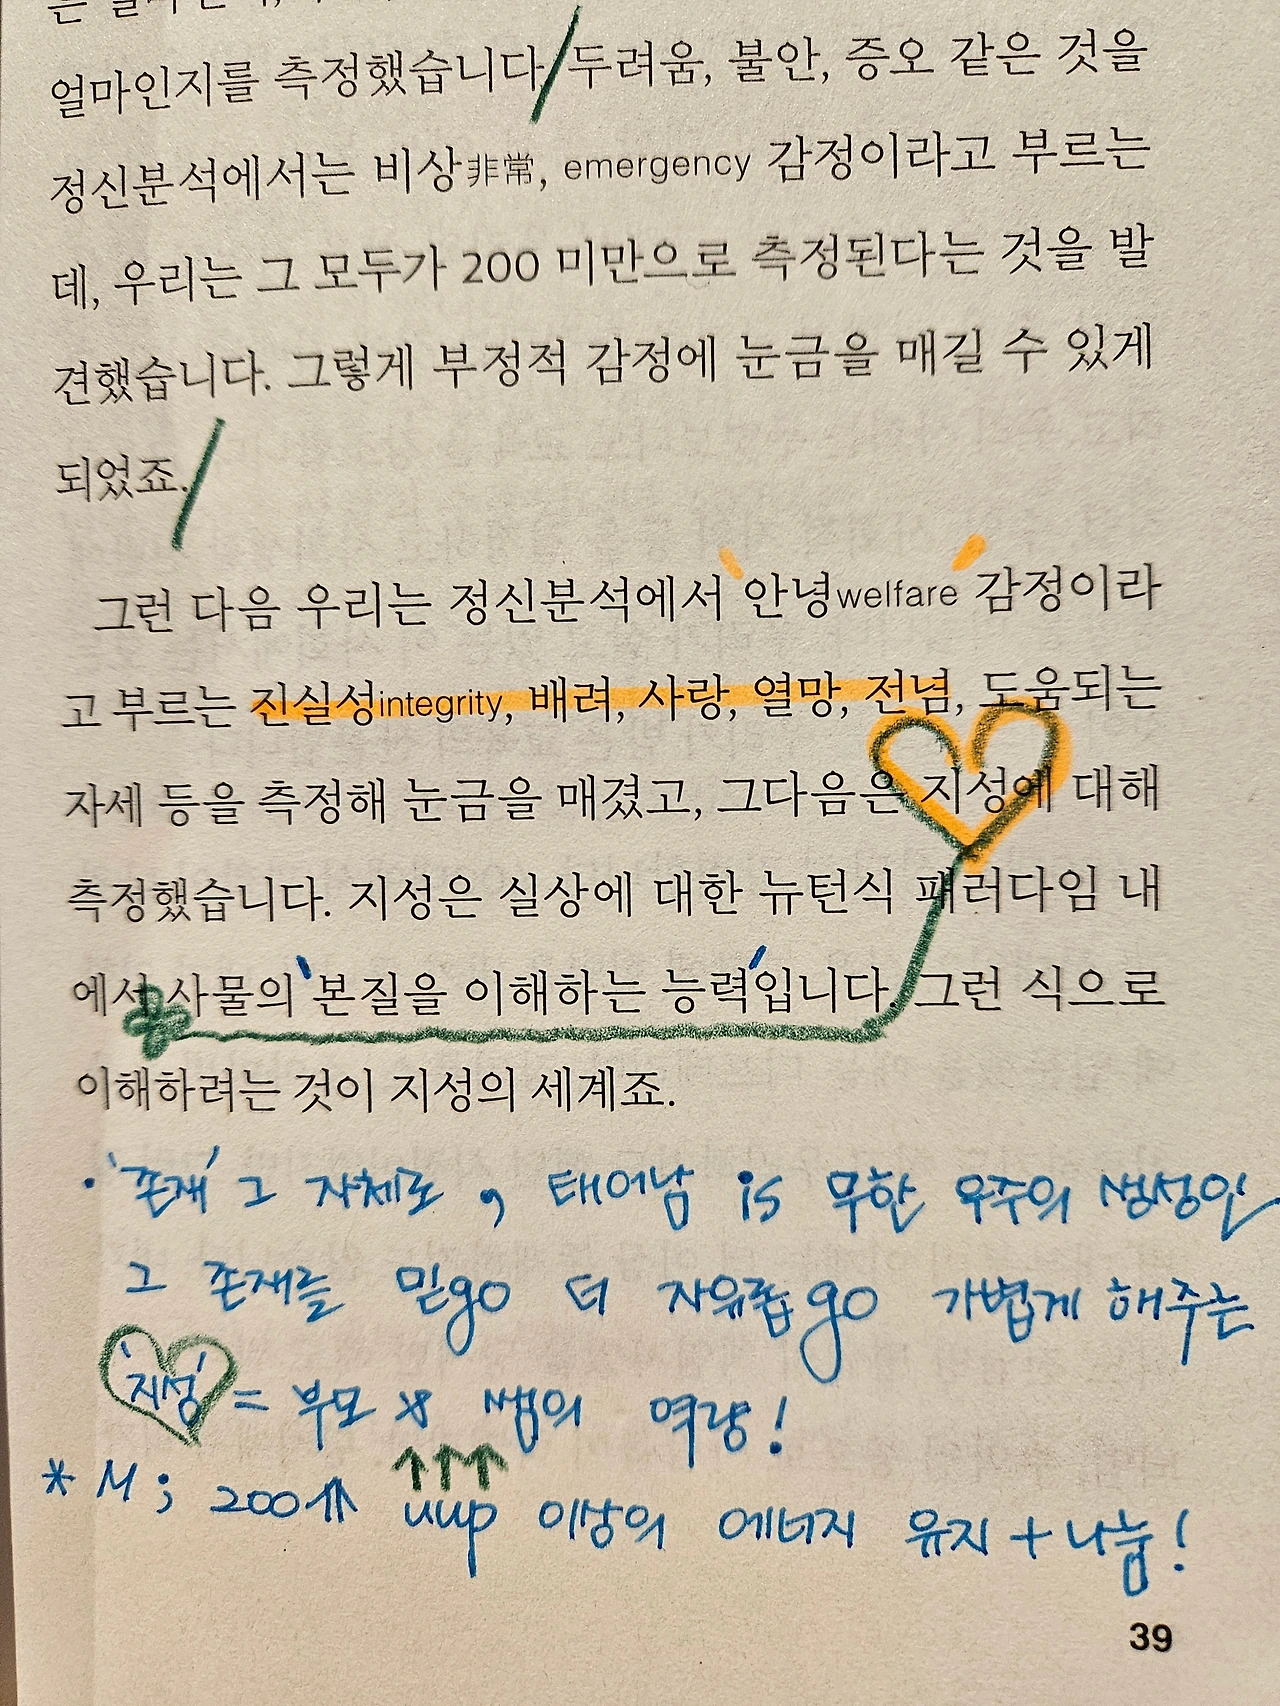 얼마인지를 측정했습니다. 두려움, 불안, 증오 같은 것을
정신분석에서는 비상非常, emergency 감정이라고 부르는
데, 우리는 그 모두가 200 미만으로 측정된다는 것을 발
견했습니다. 그렇게 부정적 감정에 눈금을 매길 수 있게
되었죠.
그런 다음 우리는 정신분석에서 '안녕welfare' 감정이라
고 부르는 진실성integrity, 배려, 사랑, 열망, 전념, 도움되는
자세 등을 측정해 눈금을 매겼고, 그다음은 지성에 대해
측정했습니다. 지성은 실상에 대한 뉴턴식 패러다임 내
에서 사물의 '본질을 이해하는 능력'입니다. 그런 식으로
이해하려는 것이 지성의 세계죠.
· '존재' 그 자체로, 태어남 is 무한 우주의 생성인
그 존재를 믿go 더 자유롭go 가볍게 해주는
'지성' = 부모 & 쌤의 역량!
* M; 200⇈ uup 이상의 에너지 유지 + 나눔!
39